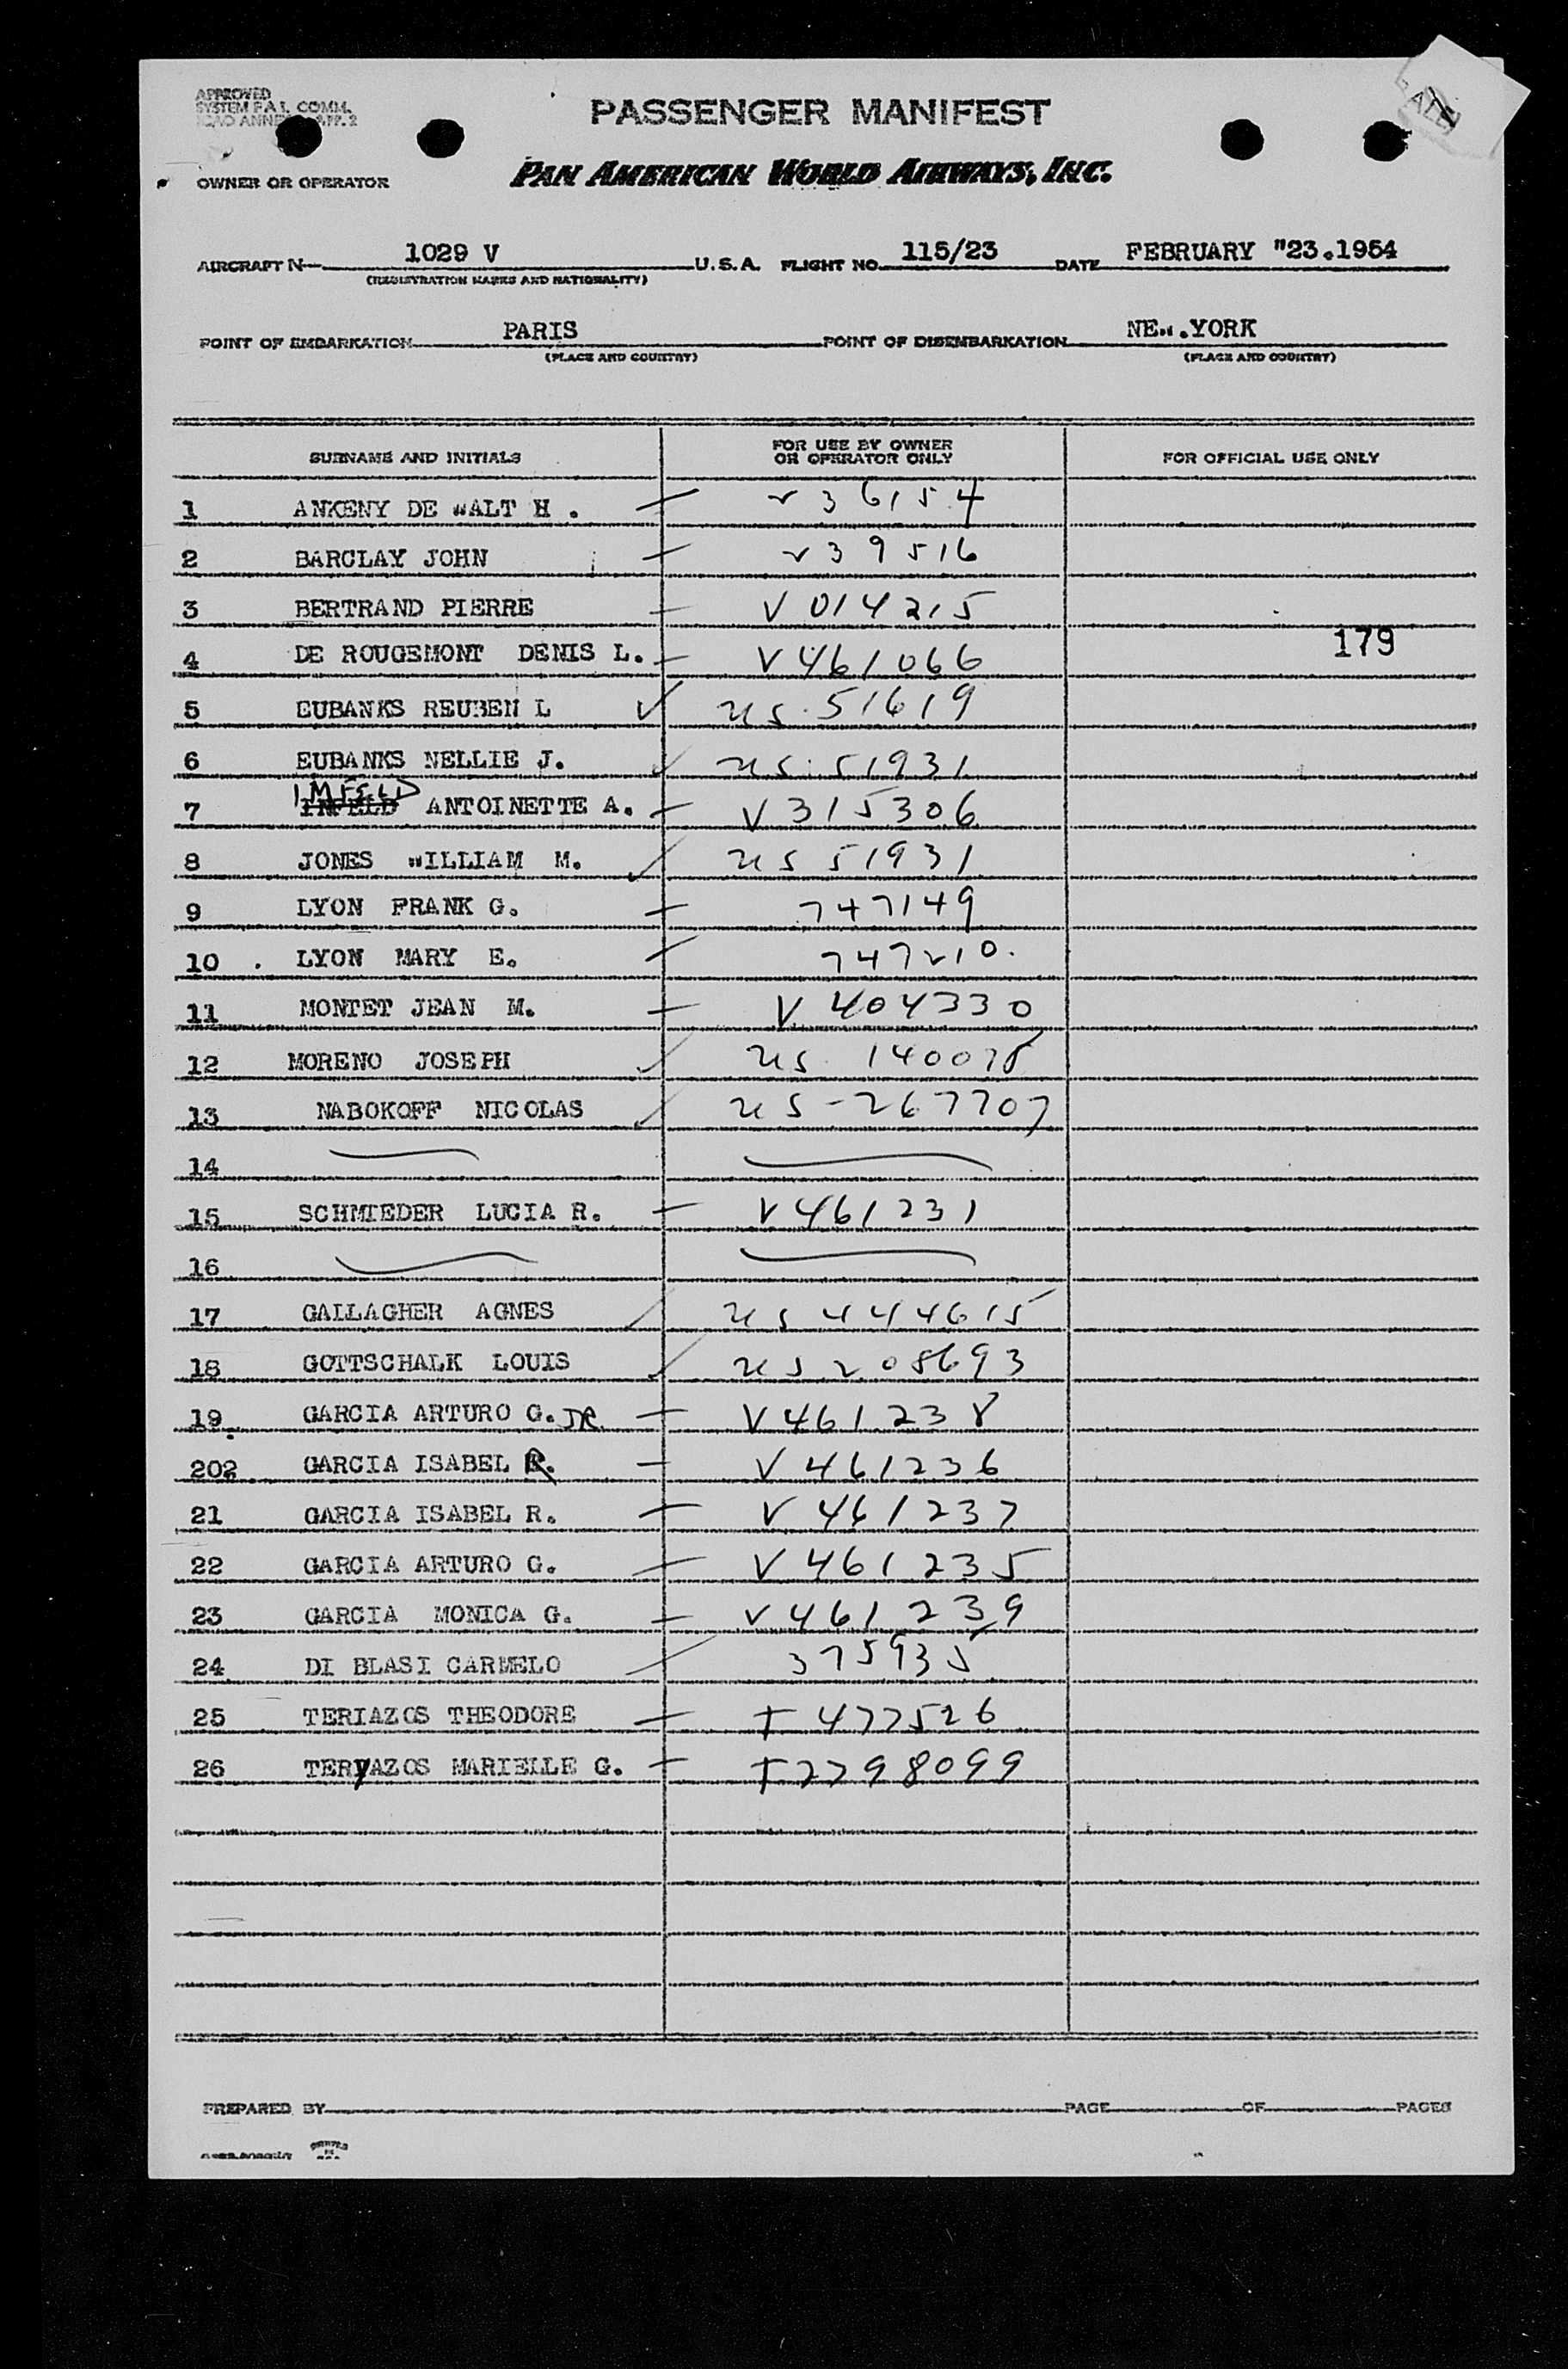 APPROVED
SYSTEM F.A.L. COMM.
ICAO ANNEX APP. 2
PASSENGER MANIFEST
OWNER OR OPERATOR PAN AMERICAN WORLD AIRWAYS, INC.
AIRCRAFT N— 1029 V U.S.A. FLIGHT NO. 115/23 DATE FEBRUARY "23.1954
(REGISTRATION MARKS AND NATIONALITY)
POINT OF EMBARKATION PARIS POINT OF DISEMBARKATION NEW.YORK
(PLACE AND COUNTRY) (PLACE AND COUNTRY)
SURNAME AND INITIALS FOR USE BY OWNER OR OPERATOR ONLY FOR OFFICIAL USE ONLY
1 ANKENY DE WALT H . — V 36154
2 BARCLAY JOHN — V 39516
3 BERTRAND PIERRE — V 014215
179
4 DE ROUGEMONT DENIS L. — V 461066
5 EUBANKS REUBEN L ✓ US. 51619
6 EUBANKS NELLIE J. ✓ US. 51931
IMFELD
7 INFELD ANTOINETTE A. — V 315306
8 JONES WILLIAM M. ✓ US 51931
9 LYON FRANK G. — 747149
10 . LYON MARY E. — 747210.
11 MONTET JEAN M. — V 404330
12 MORENO JOSEPH ✓ US 140078
13 NABOKOFF NICOLAS ✓ US-267707
14
15 SCHMIEDER LUCIA R. — V461231
16
17 GALLAGHER AGNES ✓ US 444615
18 GOTTSCHALK LOUIS ✓ US 208693
19. GARCIA ARTURO G. JR. — V461238
202 GARCIA ISABEL R. — V 461236
21 GARCIA ISABEL R. — V 461237
22 GARCIA ARTURO G. — V 461235
23 GARCIA MONICA G. — V 461239
24 DI BLASI CARMELO ✓ 375935
25 TERIAZOS THEODORE — T 477526
26 TERYAZOS MARIELLE G. — T2298099
PREPARED BY PAGE OF PAGES